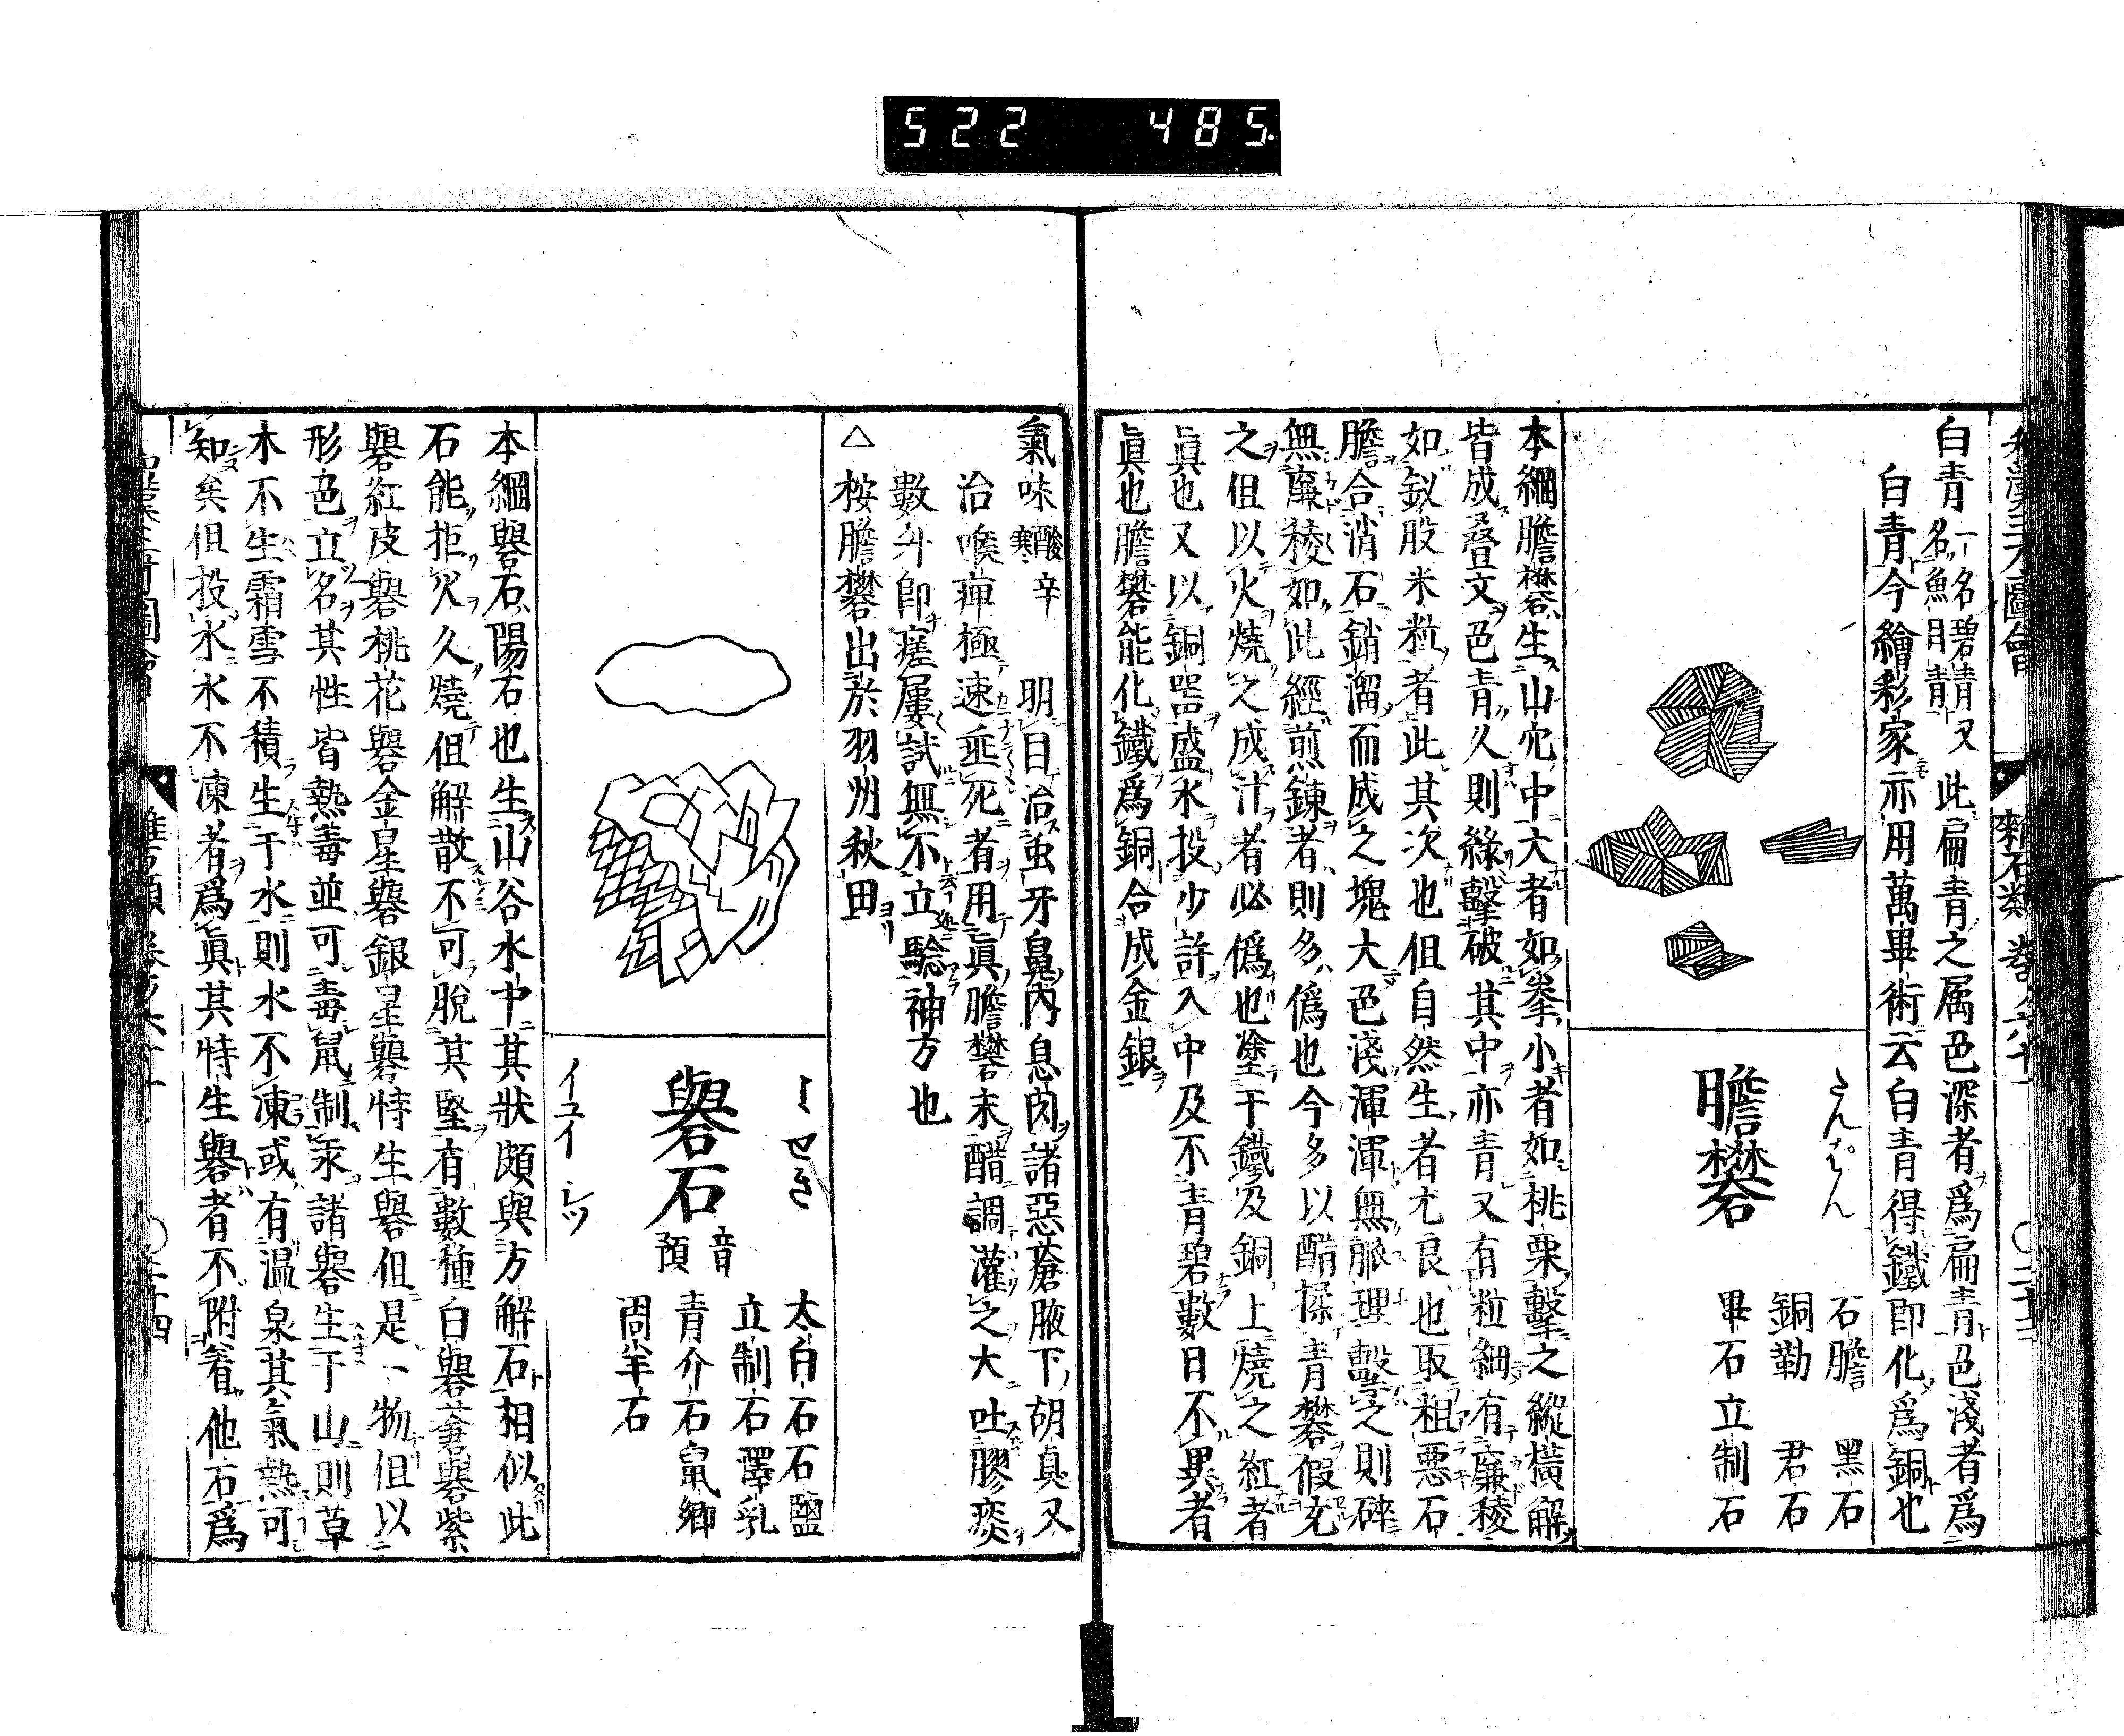 522 485
和漢三才圖會 雜石類 卷ノ六十一 ○二十三
白青 一名碧青又名魚目青 此扁青之属色深者爲扁青色淺者爲
白青今繪彩家亦用萬畢術云白青得鐵即化爲銅也
たんはん
膽礬
石膽 黑石
銅勒 君石
畢石 立制石
本綱膽礬生山宂中大者如拳小者如桃栗擊之縱橫解
皆成疊文色青久則緑擊破其中亦青又有粒細有廉稜
如釵股米粒者此其次也但自然生者尤良也取粗悪石
膽合消石銷溜而成之塊大色淺渾渾無脈理擊之則碎
無廉稜如此經煎錬者則多偽也今多以醋揉青礬假充
之但以火燒之成汁者必僞也塗于鐵及銅上燒之紅者
眞也又以銅噐盛水投少許入中及不青碧數日不異者
眞也膽礬能化鐵爲銅合成金銀
氣味 酸辛寒 明目治虫牙鼻内息肉諸惡瘡腋下胡臭又
治喉痺極速垂死者用眞膽礬末醋調灌之大吐膠痰
數舛即瘥屢試無不立驗神方也
△ 桉膽礬出於羽州秋田
よせき
礜石 音預
イユイ シツ
太白石 石鹽
立制石 澤乳
青介石 鼠鄉
固羊石
本綱礜石陽石也生山谷水中其狀頗與方解石相似此
石能拒火久燒但解散不可脫其堅有數種白礜蒼礜紫
礜紅皮礜桃花礜金星礜銀星礜特生礜但是一物但以
形色立名其性皆熱毒並可毒鼠制汞諸礜生于山則草
木不生霜雪不積生于水則水不凍或有温泉其氣熱可
知矣但投水水不凍者爲眞其特生礜者不附着他石爲